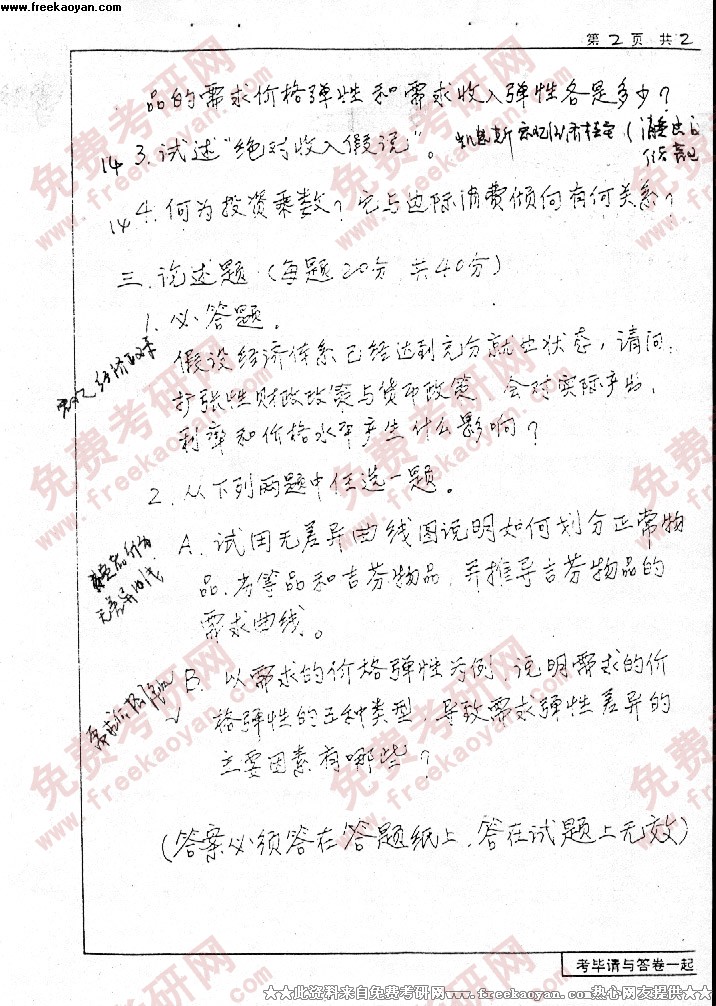 www.freekaoyan.com
第 2 页 共 2
品的需求价格弹性和需求收入弹性各是多少?
14 3. 试述"绝对收入假说"。 凯恩斯
14 4. 何为投资乘数? 它与边际消费倾向有何关系?
三. 论述题 (每题20分, 共40分)
1. 必答题。
假设经济体系已经达到充分就业状态, 请问:
扩张性财政政策与货币政策, 会对实际产出,
利率和价格水平产生什么影响?
2. 从下列两题中任选一题。
A. 试用无差异曲线图说明如何划分正常物
品, 劣等品和吉芬物品, 并推导吉芬物品的
需求曲线。
无差异曲线
B. 以需求的价格弹性为例, 说明需求的价
格弹性的五种类型, 导致需求弹性差异的
主要因素有哪些?
(答案必须答在答题纸上, 答在试题上无效)
考毕请与答卷一起
★★此资料来自免费考研网www.freekaoyan.com热心网友提供★★